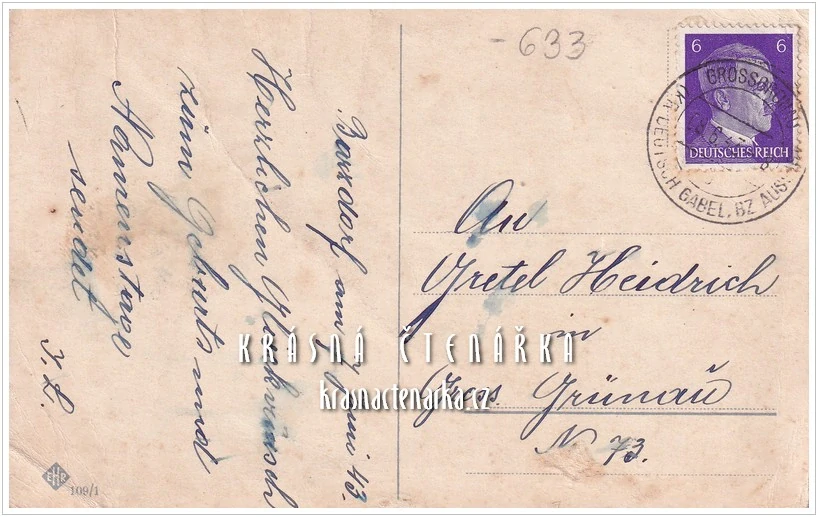 - 633
6 6
DEUTSCHES REICH
(KR. DEUTSCH GABEL, BZ AUSSIG
Barzdorf am 7 Juni 43.
Herzlichen Glückwunsch
zum Geburts und
Namenstage
sendet
An
Gretel Heidrich
in
Gros Grünau
N 73.
KRÁSNÁ ČTENÁŘKA
krasnactenarka.cz
EHR
109/1